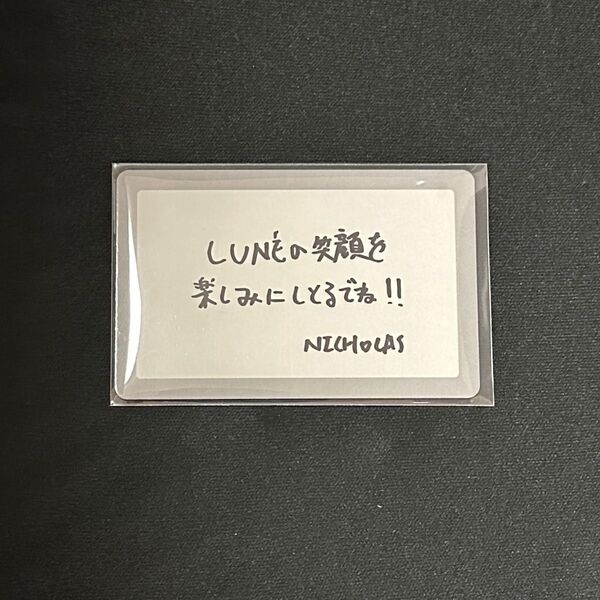 LUNÉの笑顔を
楽しみにしとるでね!!
NICHOLAS